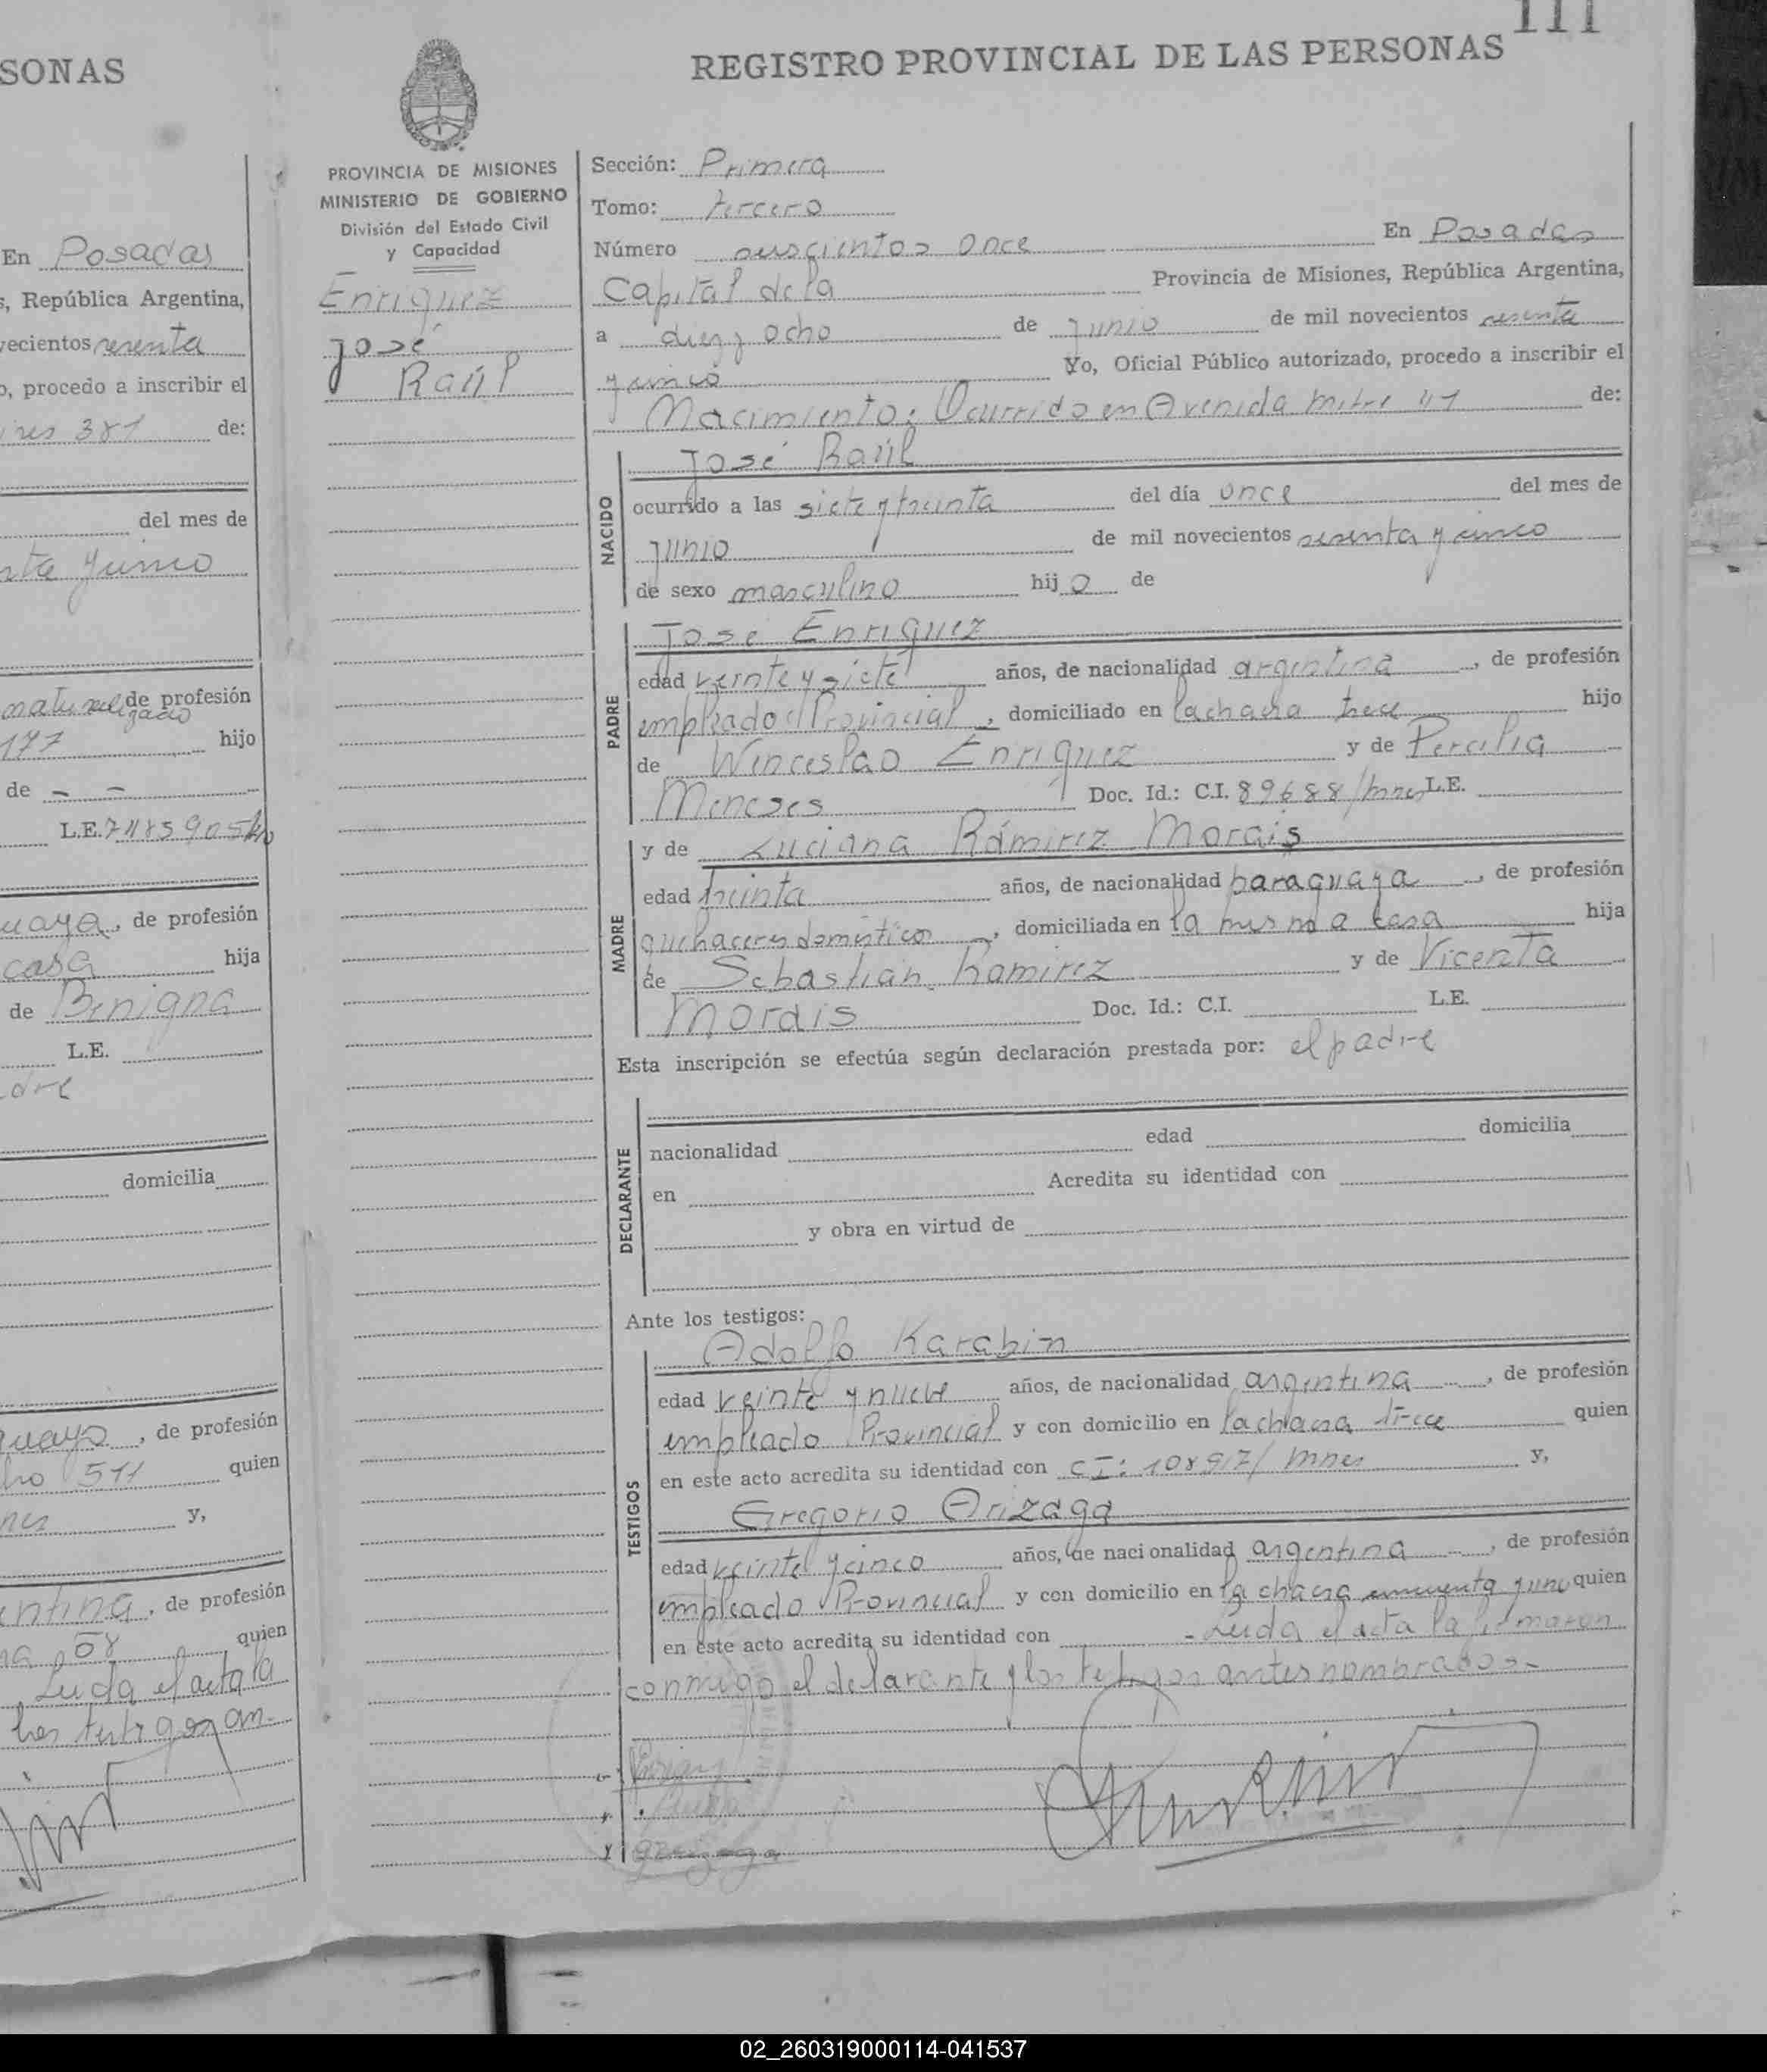 SONAS
En Posadas
s, República Argentina,
vecientos sesenta
o, procedo a inscribir el
ires 381 de:
del mes de
nta y cinco
naturalizado de profesión
177 hijo
de — —
L.E.
uaya, de profesión
casa hija
de Benigna
L.E.
adre
domicilia
guayo, de profesión
511 quien
nes y,
entina, de profesión
58 quien
Leida el acta la
los testigos an-
111
REGISTRO PROVINCIAL DE LAS PERSONAS
PROVINCIA DE MISIONES
MINISTERIO DE GOBIERNO
División del Estado Civil
y Capacidad
Enriquez
José
Raúl
Sección: Primera
Tomo: tercero
Número seiscientos once En Posadas
Capital de la Provincia de Misiones, República Argentina,
a diez y ocho de junio de mil novecientos sesenta
y cinco Yo, Oficial Público autorizado, procedo a inscribir el
Nacimiento: Ocurrido en Avenida Mitre de:
NACIDO
José Raúl
ocurrido a las siete y treinta del día once del mes de
junio de mil novecientos sesenta y cinco
de sexo masculino hijo de
PADRE
José Enriquez
edad veinte y siete años, de nacionalidad argentina, de profesión
empleado Provincial, domiciliado en la chacra trece hijo
de Winceslao Enriquez y de Percilia
Meneses Doc. Id.: C.I. 89688/mnes L.E.
MADRE
y de Luciana Rámirez Morais
edad treinta años, de nacionalidad paraguaya, de profesión
quehaceres domésticos, domiciliada en la misma casa hija
de Sebastián Ramirez y de Vicenta
Morais Doc. Id.: C.I. L.E.
Esta inscripción se efectúa según declaración prestada por: el padre
DECLARANTE
nacionalidad edad domicilia
en Acredita su identidad con
y obra en virtud de
Ante los testigos:
TESTIGOS
Adolfo Karabin
edad veinte y nueve años, de nacionalidad argentina, de profesión
empleado Provincial y con domicilio en la chacra trece quien
en este acto acredita su identidad con CI: 108917/mnes y,
Gregorio Arizaga
edad veinte y cinco años, de nacionalidad argentina, de profesión
empleado Provincial y con domicilio en la chacra cincuenta y uno quien
en este acto acredita su identidad con - Leida el acta la firmaron
conmigo el declarante y los testigos antes nombrados.-
02_260319000114-041537